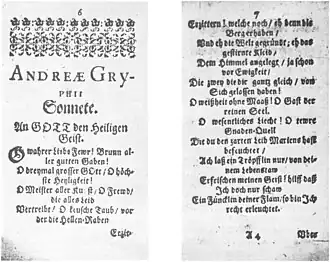 6
ANDREÆ GRY-
PHII
Sonnete.
An GOTT den Heiligen
Geist.
O wahrer Liebe Fewr! Brunn al-
ler gutten Gaben!
O dreymal grosser GOtt! O höch-
ste Heyligkeit!
O Meister aller Kunst, O Frewd,
die alles Leid
Vertreibt! O keusche Taub, vor
der die Hellen-Raben
Erzit-
7
Erzittern! welche noch/ eh denn die
Berg erhaben/
Und eh die Welt gegründt; eh das
gestirnte Kleid/
Dem Himmel angelegt/ ja schon
vor Ewigkeit/
Die zwey die dir gantz gleich/ von
sich gelassen haben!
O weißheit ohne Maaß! O Gast der
reinen Seel.
O wesentliches Liecht! O tewre
Gnaden-Quell
Die du den zarten Leib Mariens hast
befeuchtet/
Ach laß ein Tröpfflin nur/ von dei-
nem Lebenstaw
Erfrischen meinen Geist! hilff daß
Ich doch nur schaw
Ein Füncklin deiner Flam/ so bin Ich
recht erleuchtet.
A 4